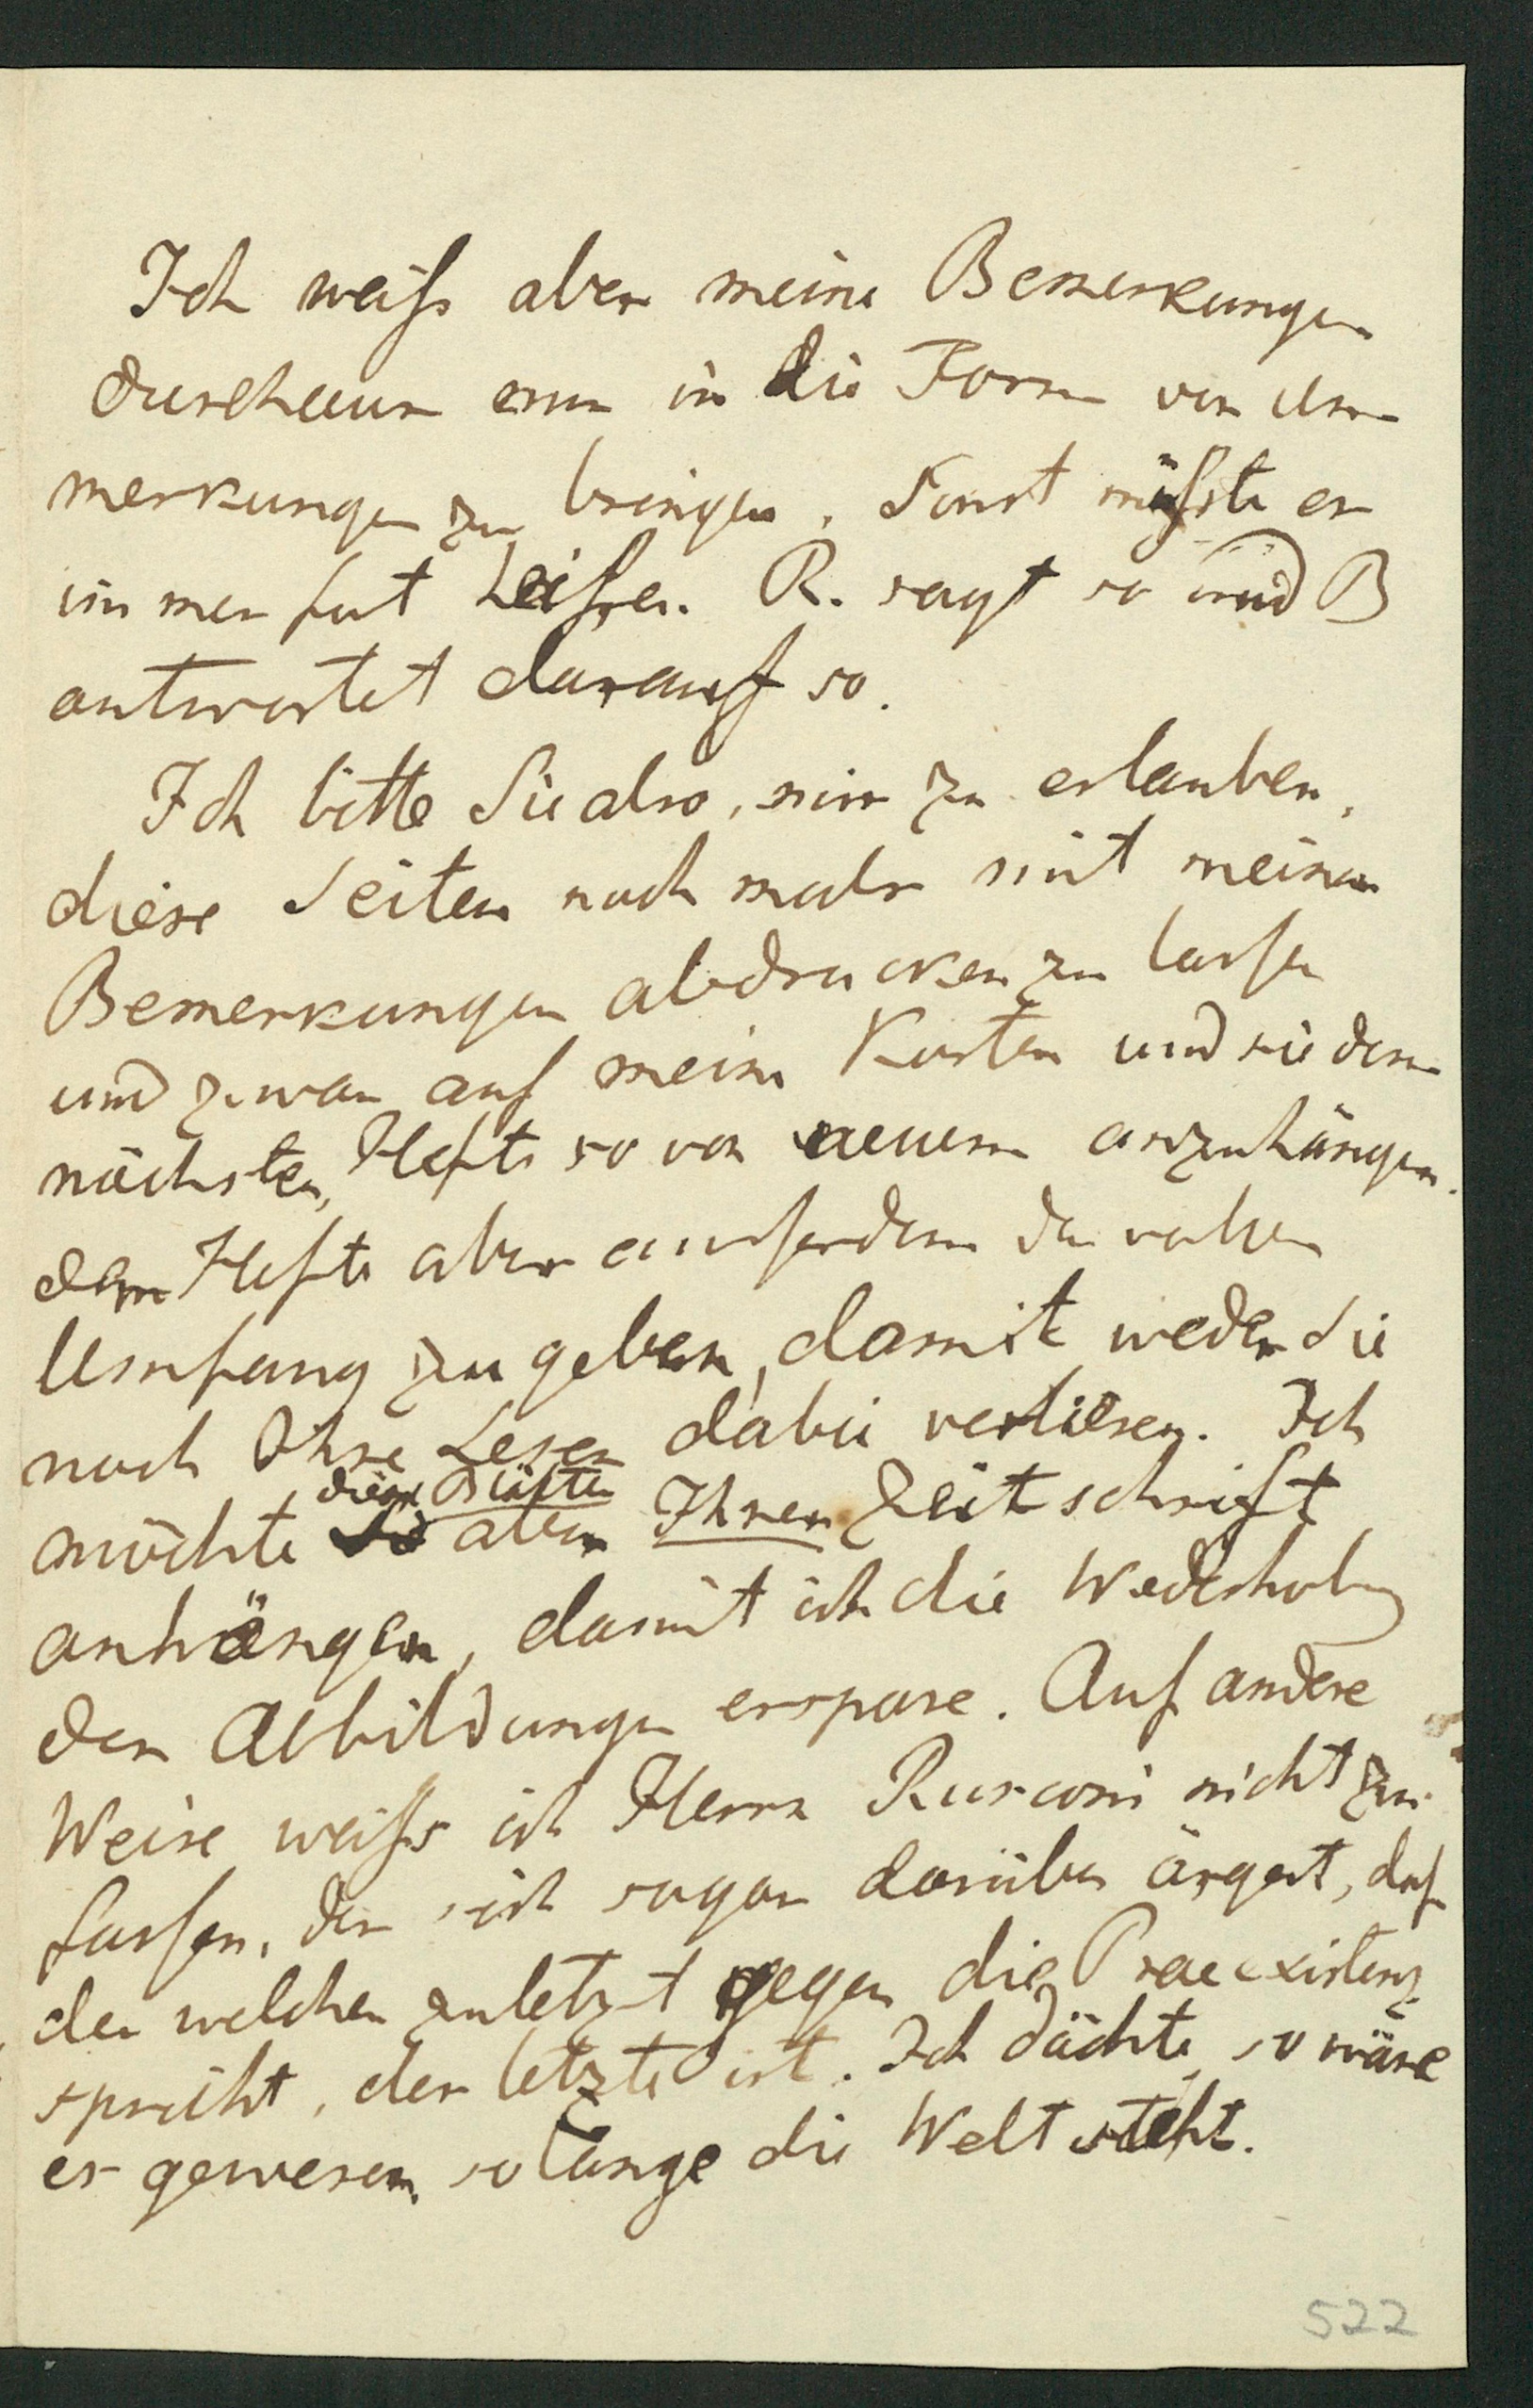 Ich weiß aber meine Bemerkungen
durchaus nur in die Form von An
merkungen zu bringen. Sonst müßte es
immer fort heißen. R. sagt so und B
antwortet darauf so.
Ich bitte Sie also, mir zu erlauben,
diese Seiten noch mals mit meinen
Bemerkungen abdrucken zu lassen
und zwar auf meine Kosten und sie dem
nächsten Hefte so von neuem anzuhängen.
dem Hefte aber ausserdem den vollen
Umfang zu geben, damit weder Sie
noch Ihre Leser dabei verlieren. Ich
diese Blätter
möchte aber Ihrer Zeitschrift
anhängen, damit ich die Wiederholung
der Abbildungen erspare. Auf andere
Weise weiß ich Herrn Rusconi nicht zu
fassen, der sich sogar darüber ärgert, daß
der welcher zuletzt gegen die Praeexistenz
spricht, der letzte ist. Ich dächte, so wäre
es gewesen, so lange die Welt steht.
522